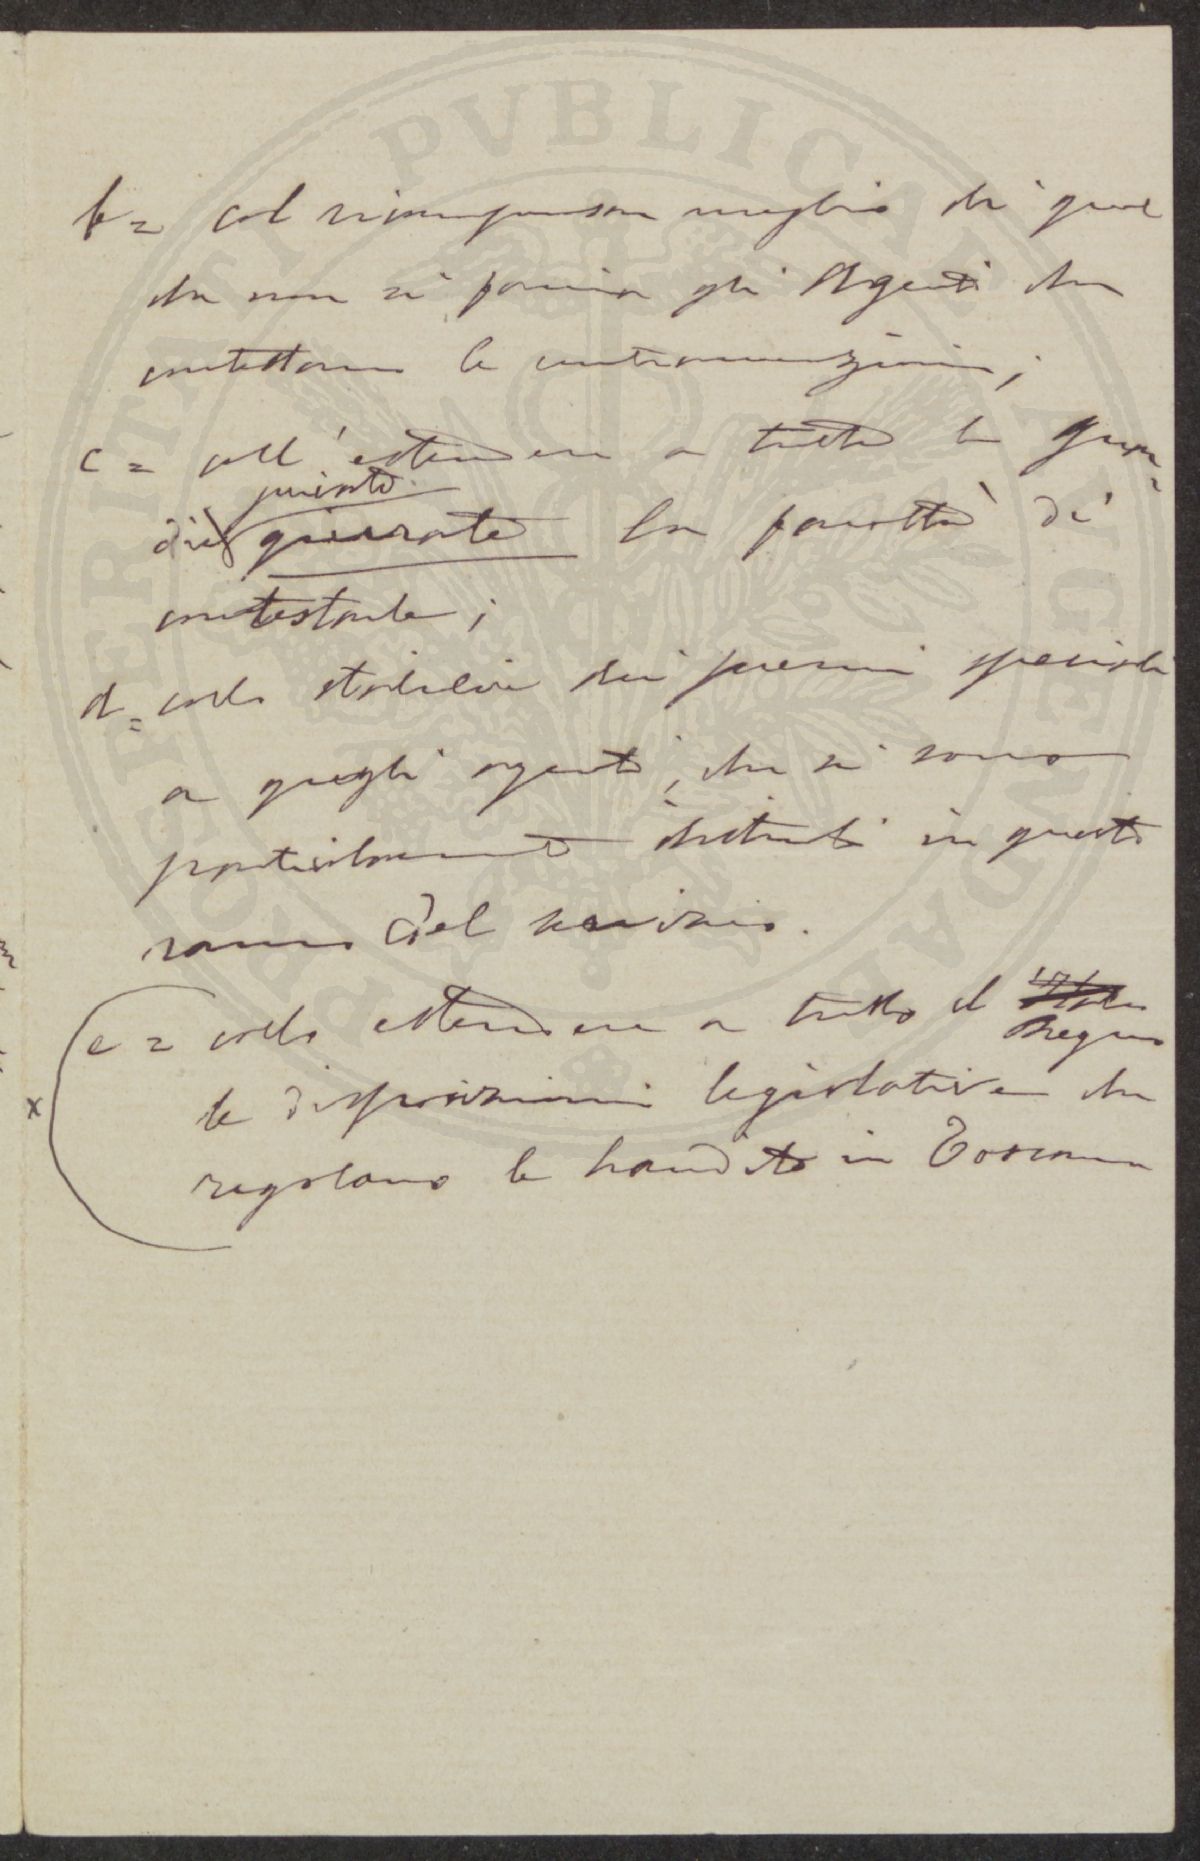 b = col ricompensar meglio di quel
che non si faccia gli Agenti che
contestano le contravvenzioni;
c = coll'estendere a tutte le guar=
private
die giurate la facoltà di
contestarle;
d = collo stabilire dei premi speciali
a quegli agenti, che si sono
particolarmente distinti in questo
ramo del servizio.
e = collo estendere a tutto il
Regno
x le disposizioni legislative che
regolano le bandite in Toscana
PROSPERITASI PVBLICAE AVGENDAE